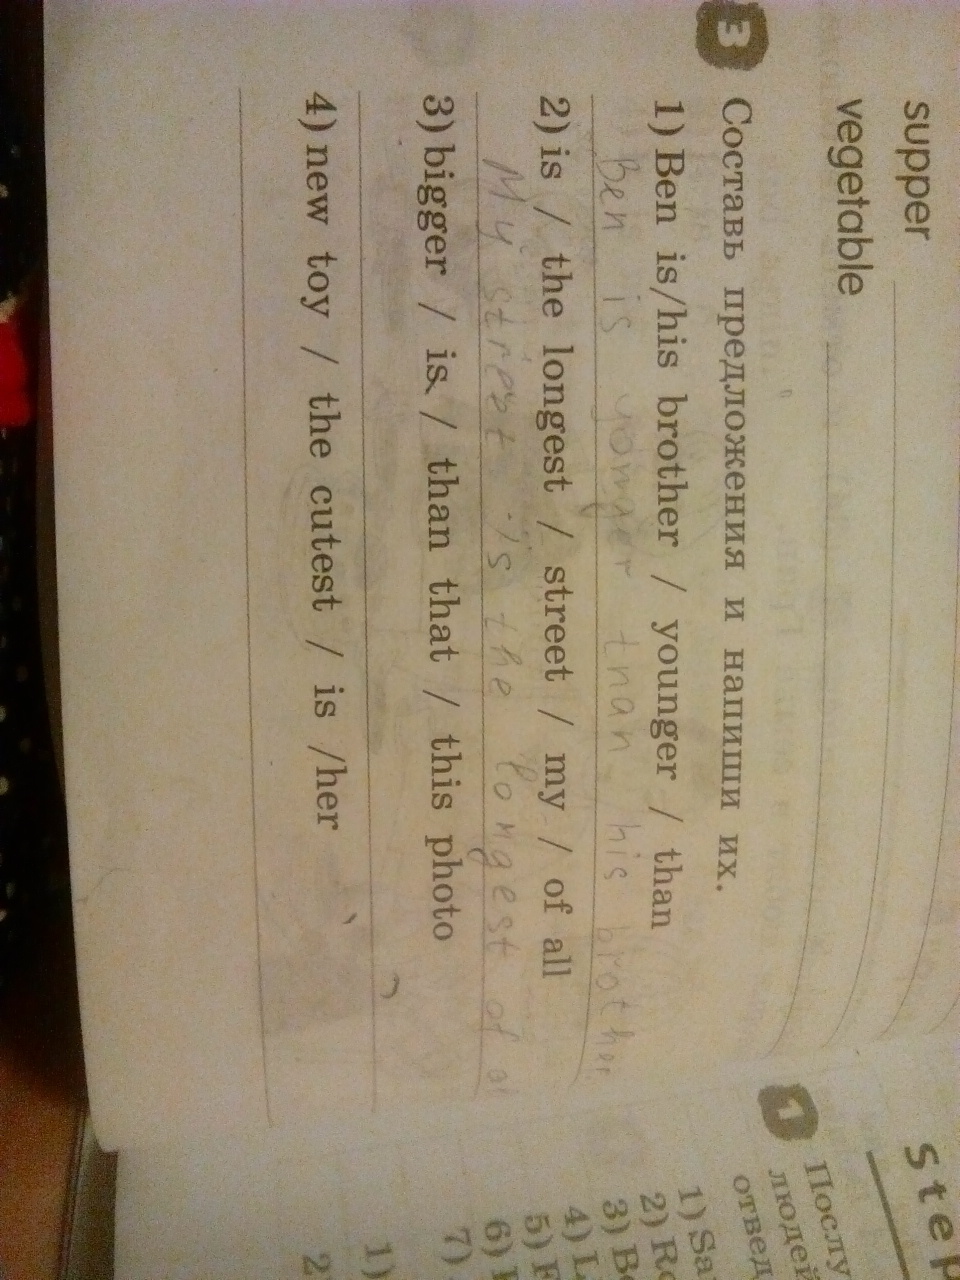 supper
vegetable
3 Составь предложения и напиши их.
1) Ben is/his brother / younger / than
Ben is yonger than his brother.
2) is / the longest / street / my / of all
My street is the longest of al
3) bigger / is / than that / this photo
4) new toy / the cutest / is /her
Step
1 Послу
людей
отвед
1) Sa
2) Ro
3) Be
4) L
5) F
6)
7)
1)
2